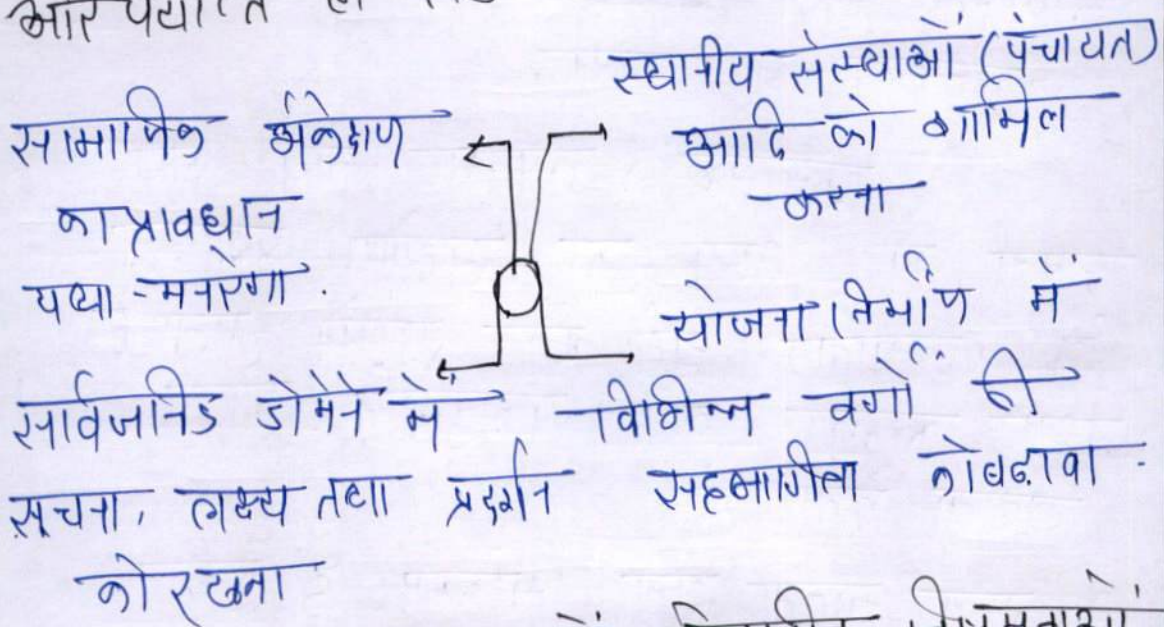 और पर्याप्त
सामाजिक अंकेक्षण
का प्रावधान
यथा - मनरेगा .
स्थानीय संस्थाओं (पंचायत)
आदि को शामिल
करना
सार्वजनिक डोमेन में
सूचना, लक्ष्य तथा प्रदर्शन
को रखना
योजना निर्माण में
विभिन्न वर्गों की
सहभागिता को बढ़ावा .